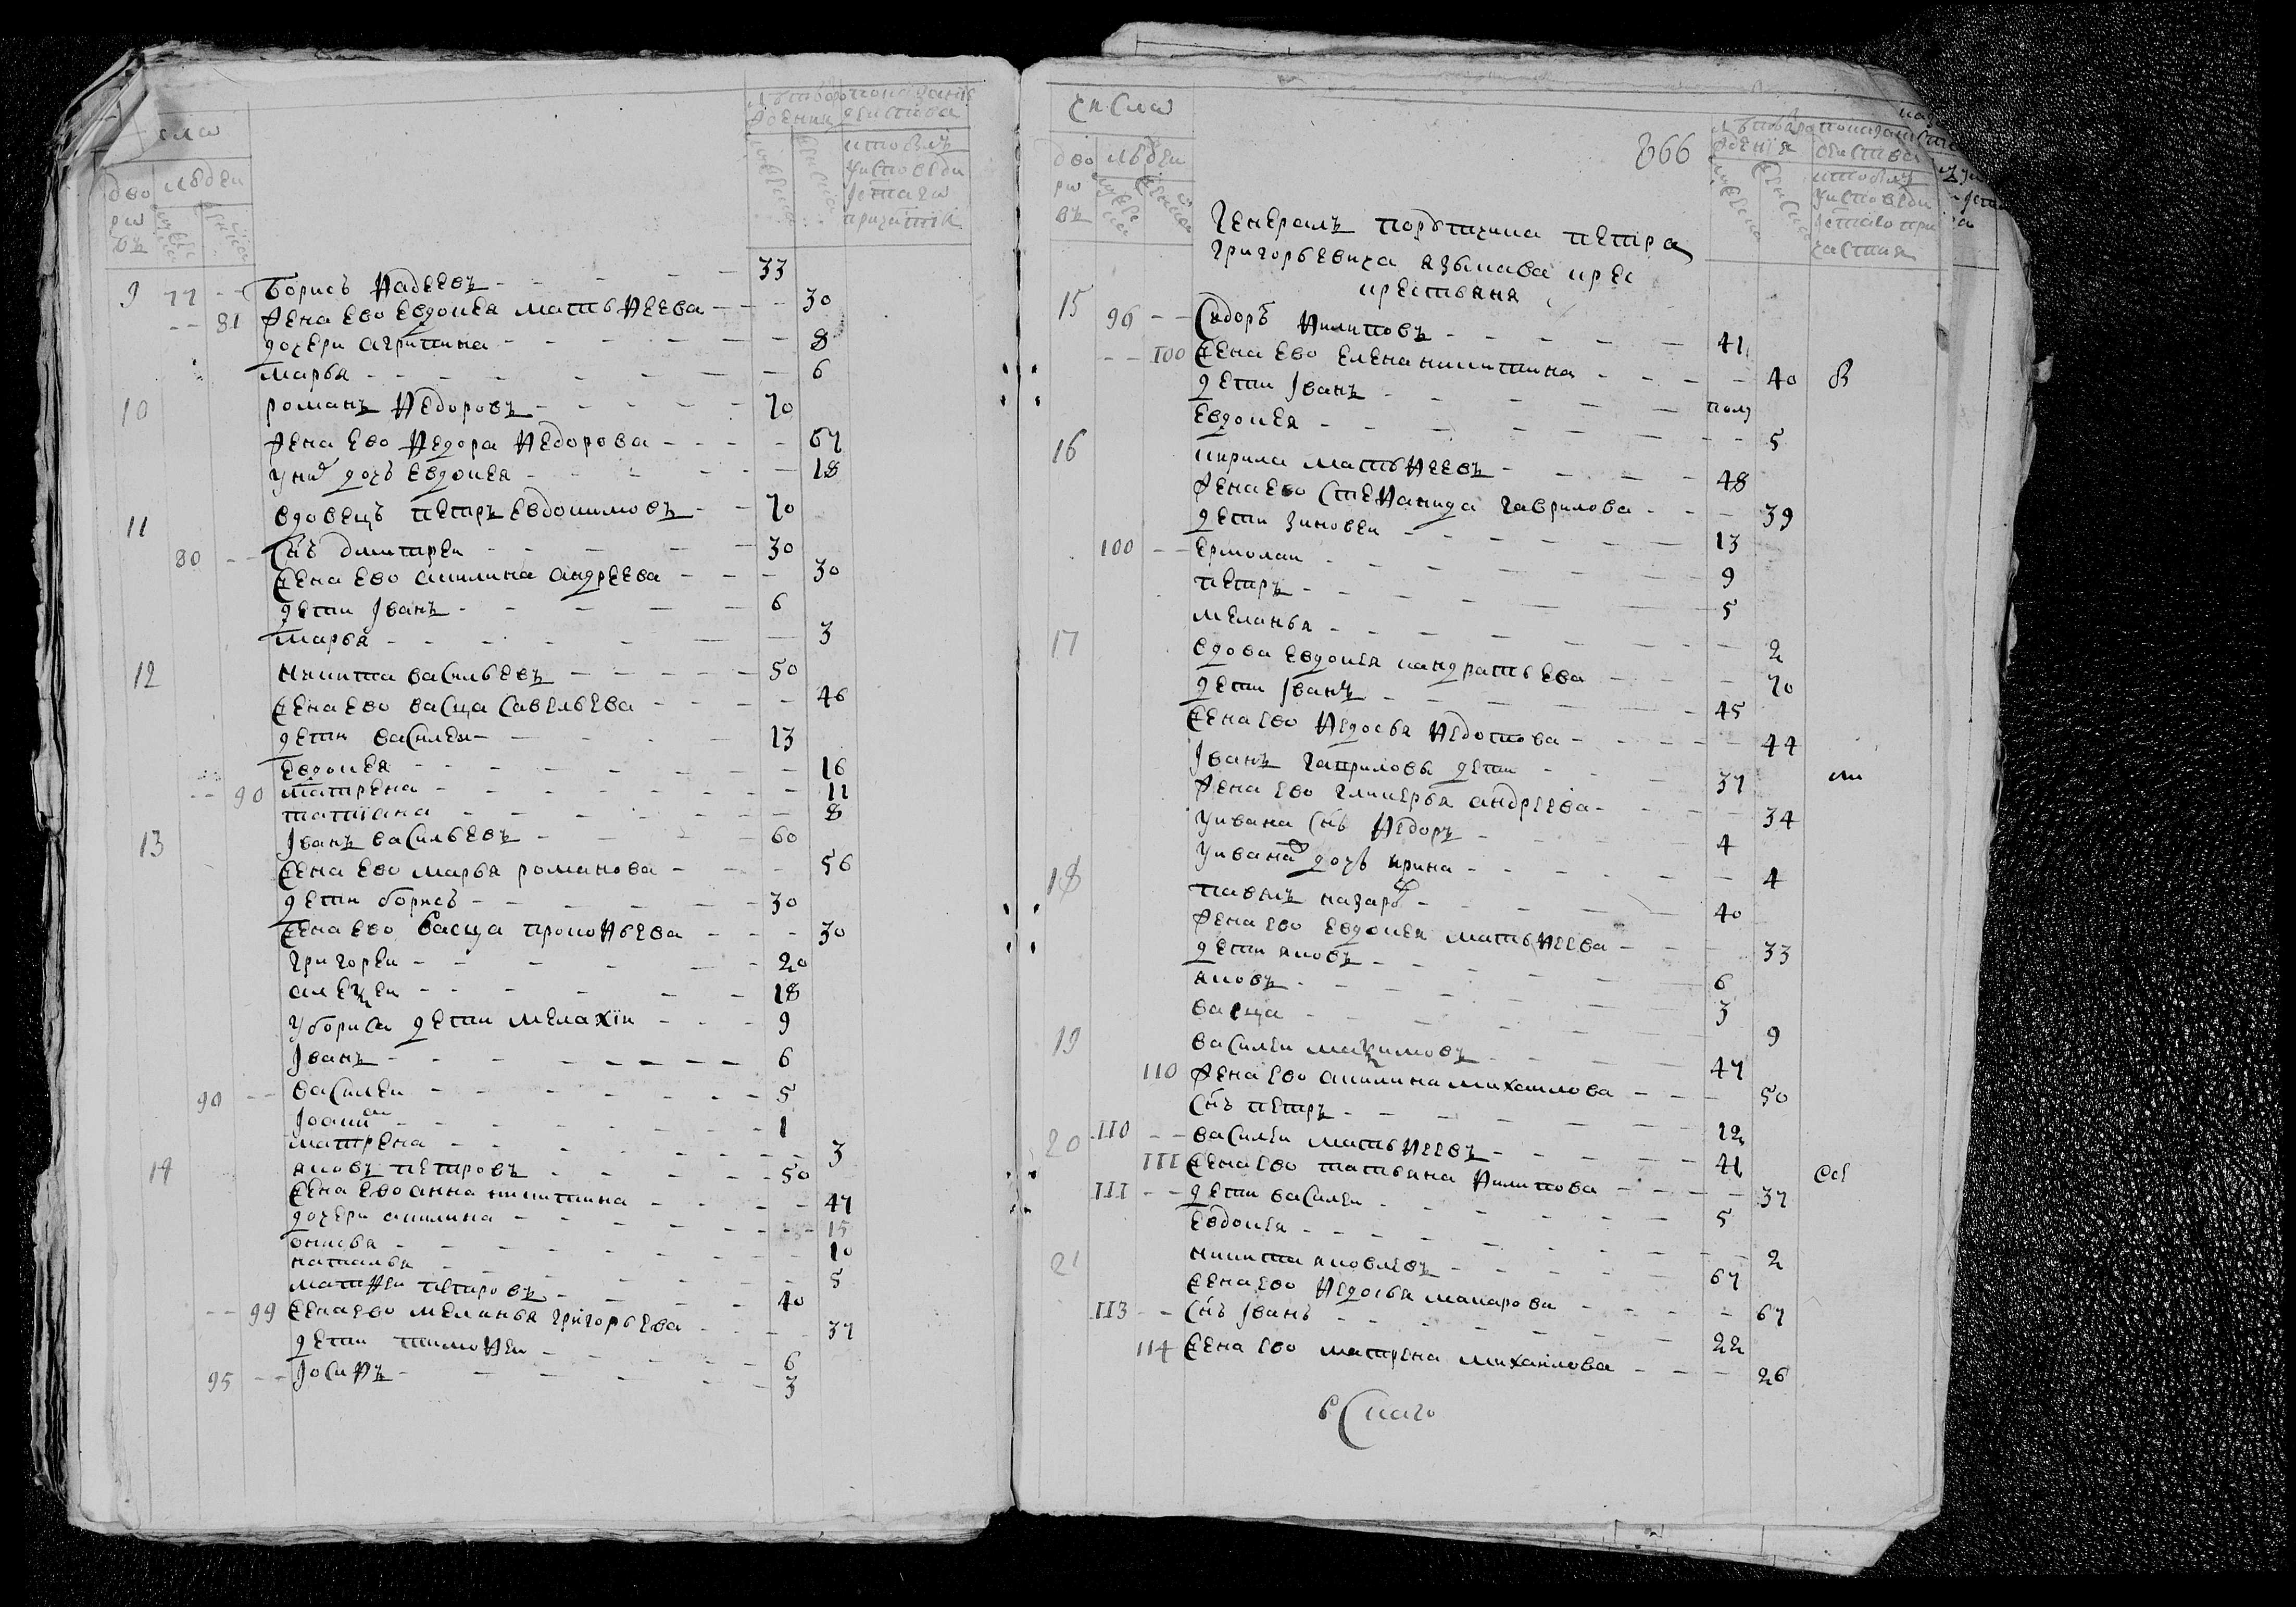 числа
дво
ръ
въ
людеи
9 77 -- Борисъ Фадеевъ 33
-- 81 жена ево Евдокея матвѣеева 30
дочери агрипина 8
марья 6
10 романъ Федоровъ 70
жена ево Федора Федорова 67
у нихъ дочь Евдокея 18
11 вдовецъ петръ Евдокимовъ 70
80 -- снъ дмитреи 30
жена ево акилина андреева 30
дети Iванъ 6
марья 3
12 никита васильевъ 50
жена ево васца савельева 46
дети василеи 13
Евдокея 16
-- 90 матрена 11
татиана 8
13 Iванъ васильевъ 60
жена ево марья романова 56
дети борисъ 30
жена ево васца прокофьева 30
григореи 20
алеѯеи 18
у бориса дети мелахiи 9
Iванъ 6
90 -- василеи 5
Iоанъ 1
матрена 3
14 яковъ петровъ 50
жена ево анна никитина 47
дочери акилина 15
онисья 10
наталья 5
матфеи петровъ 40
-- 99 жена ево меланья григорьева 37
дети тимофеи 6
95 -- Iосифъ 3
числа
дво
ръ
въ
людеи
366
Генералъ порутчика петра
Григорьевича азмава крес
крестьяня
15 96 -- Сидоръ Филиповъ 41
-- 100 жена ево Елена никитина 40 В
дети Iванъ пол
Евдокея 5
16 кирила матвѣеевъ 48
жена ево Стефанида гаврилова 39
дети зиновеи 13
100 -- Ермолаи 9
петръ 5
меланья 2
17 вдова Евдокея кандратьева 70
дети Iванъ 45
жена ево Федосья Федотова 44
Iванъ гавриловы дети 37
жена ево гликерья андреева 34
у ивана снъ Федоръ 4
у ивана дочь ирина 4
18 павелъ назаровъ 40
жена ево Евдокея матвѣеева 33
дети яковъ 6
яковъ 3
васца 9
19 василеи маѯимовъ 47
110 жена ево акилина михаилова 50
снъ петръ 12
20 110 -- василеи матвѣеевъ 41
111 жена ево татьяна Филипова 37
111 -- дети василеи 5
Евдокея 2
21 никита яковлевъ 67
жена ево Федосья макарова 67
113 -- снъ Iванъ 22
114 жена ево матрена михаилова 26